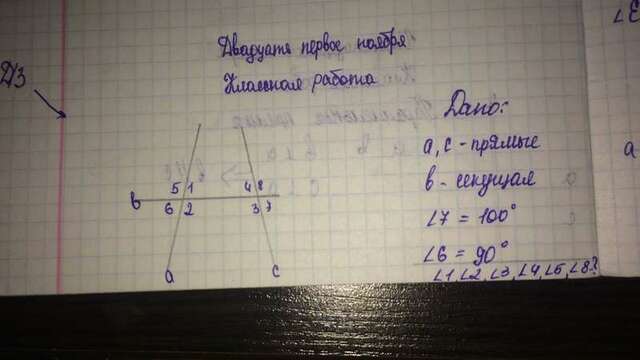 Двадцать первое ноября
Классная работа
ДЗ
Дано:
a, c - прямые
b - секущая
∠7 = 100°
∠6 = 90°
∠1, ∠2, ∠3, ∠4, ∠5, ∠8?
5 1 4 8
b 6 2 3 7
a c
∠E
a